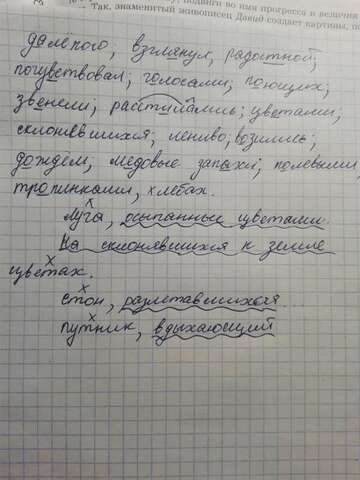 подвиги во имя прогресса и величия
— Так, знаменитый живописец Давид создает картины, по
далекого, взглянул, радостной,
почувствовал; голосами; поющих;
звенели; расступились; цветами;
склонявшихся; лениво; возились;
дождём, медовые запахи; полевыми,
тропинками, хлебах.
Луга, осыпанные цветами.
На склонявшихся к земле
цветах.
стон, разметавшихся.
путник, вдыхающий